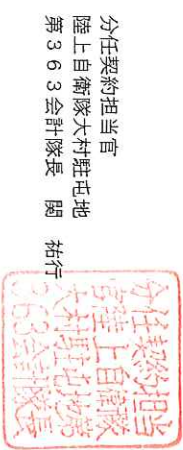 分任契約担当官
陸上自衛隊大村駐屯地
第３６３会計隊長　関　祐行
分任契約担当
官陸上自衛隊
大村駐屯地第
363会計隊長